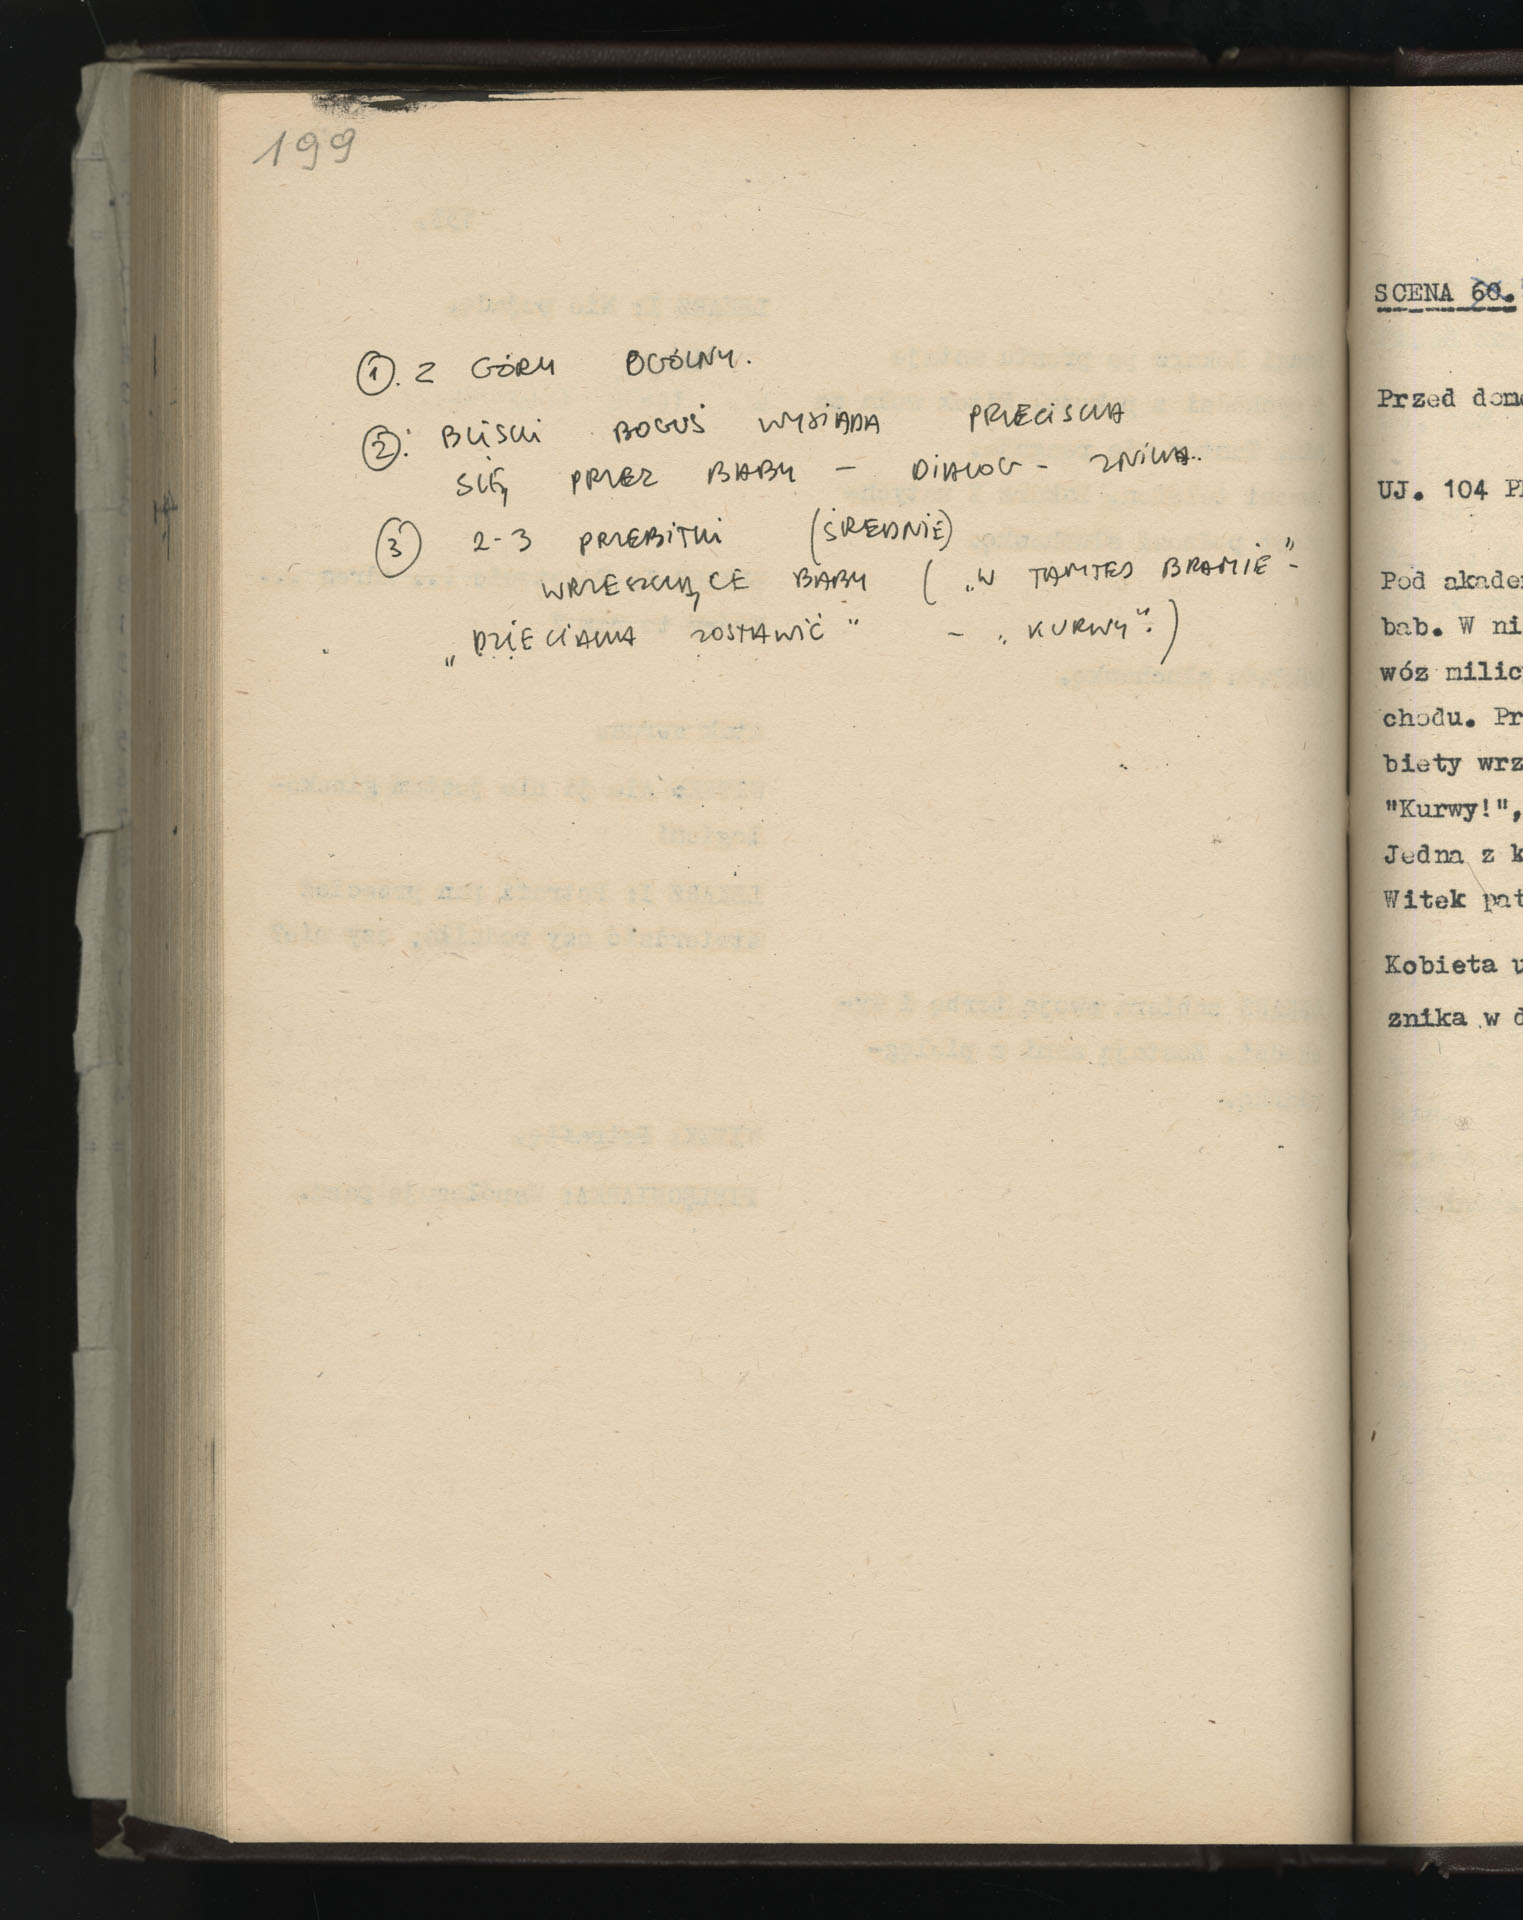 199
①. Z GÓRY OGÓLNY.
②. BLISKI BOGUŚ WYSIADA PRZECISKA
SIĘ PRZEZ BABY – DIALOG – ZNIKA.
③ 2-3 PRZEBITKI (ŚREDNIE)
WRZESZCZĄCE BABY ( „W TAMTEJ BRAMIE" –
„DZIECIAKA ZOSTAWIĆ" – „KURWY". )
SCENA 60.
Przed dom
UJ. 104 P
Pod akade
bab. W ni
wóz milic
chodu. Pr
biety wrz
"Kurwy!",
Jedna z k
Witek pat
Kobieta u
znika w d